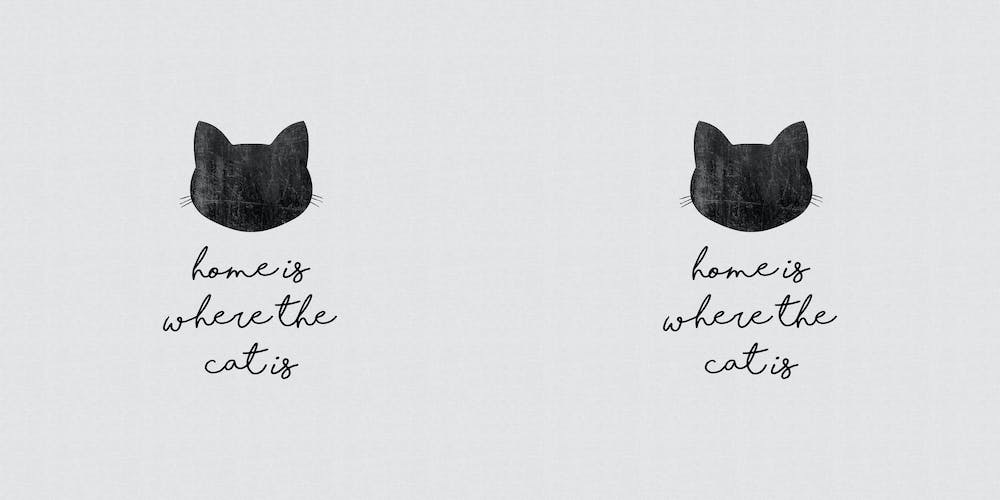 home is
where the
cat is
home is
where the
cat is